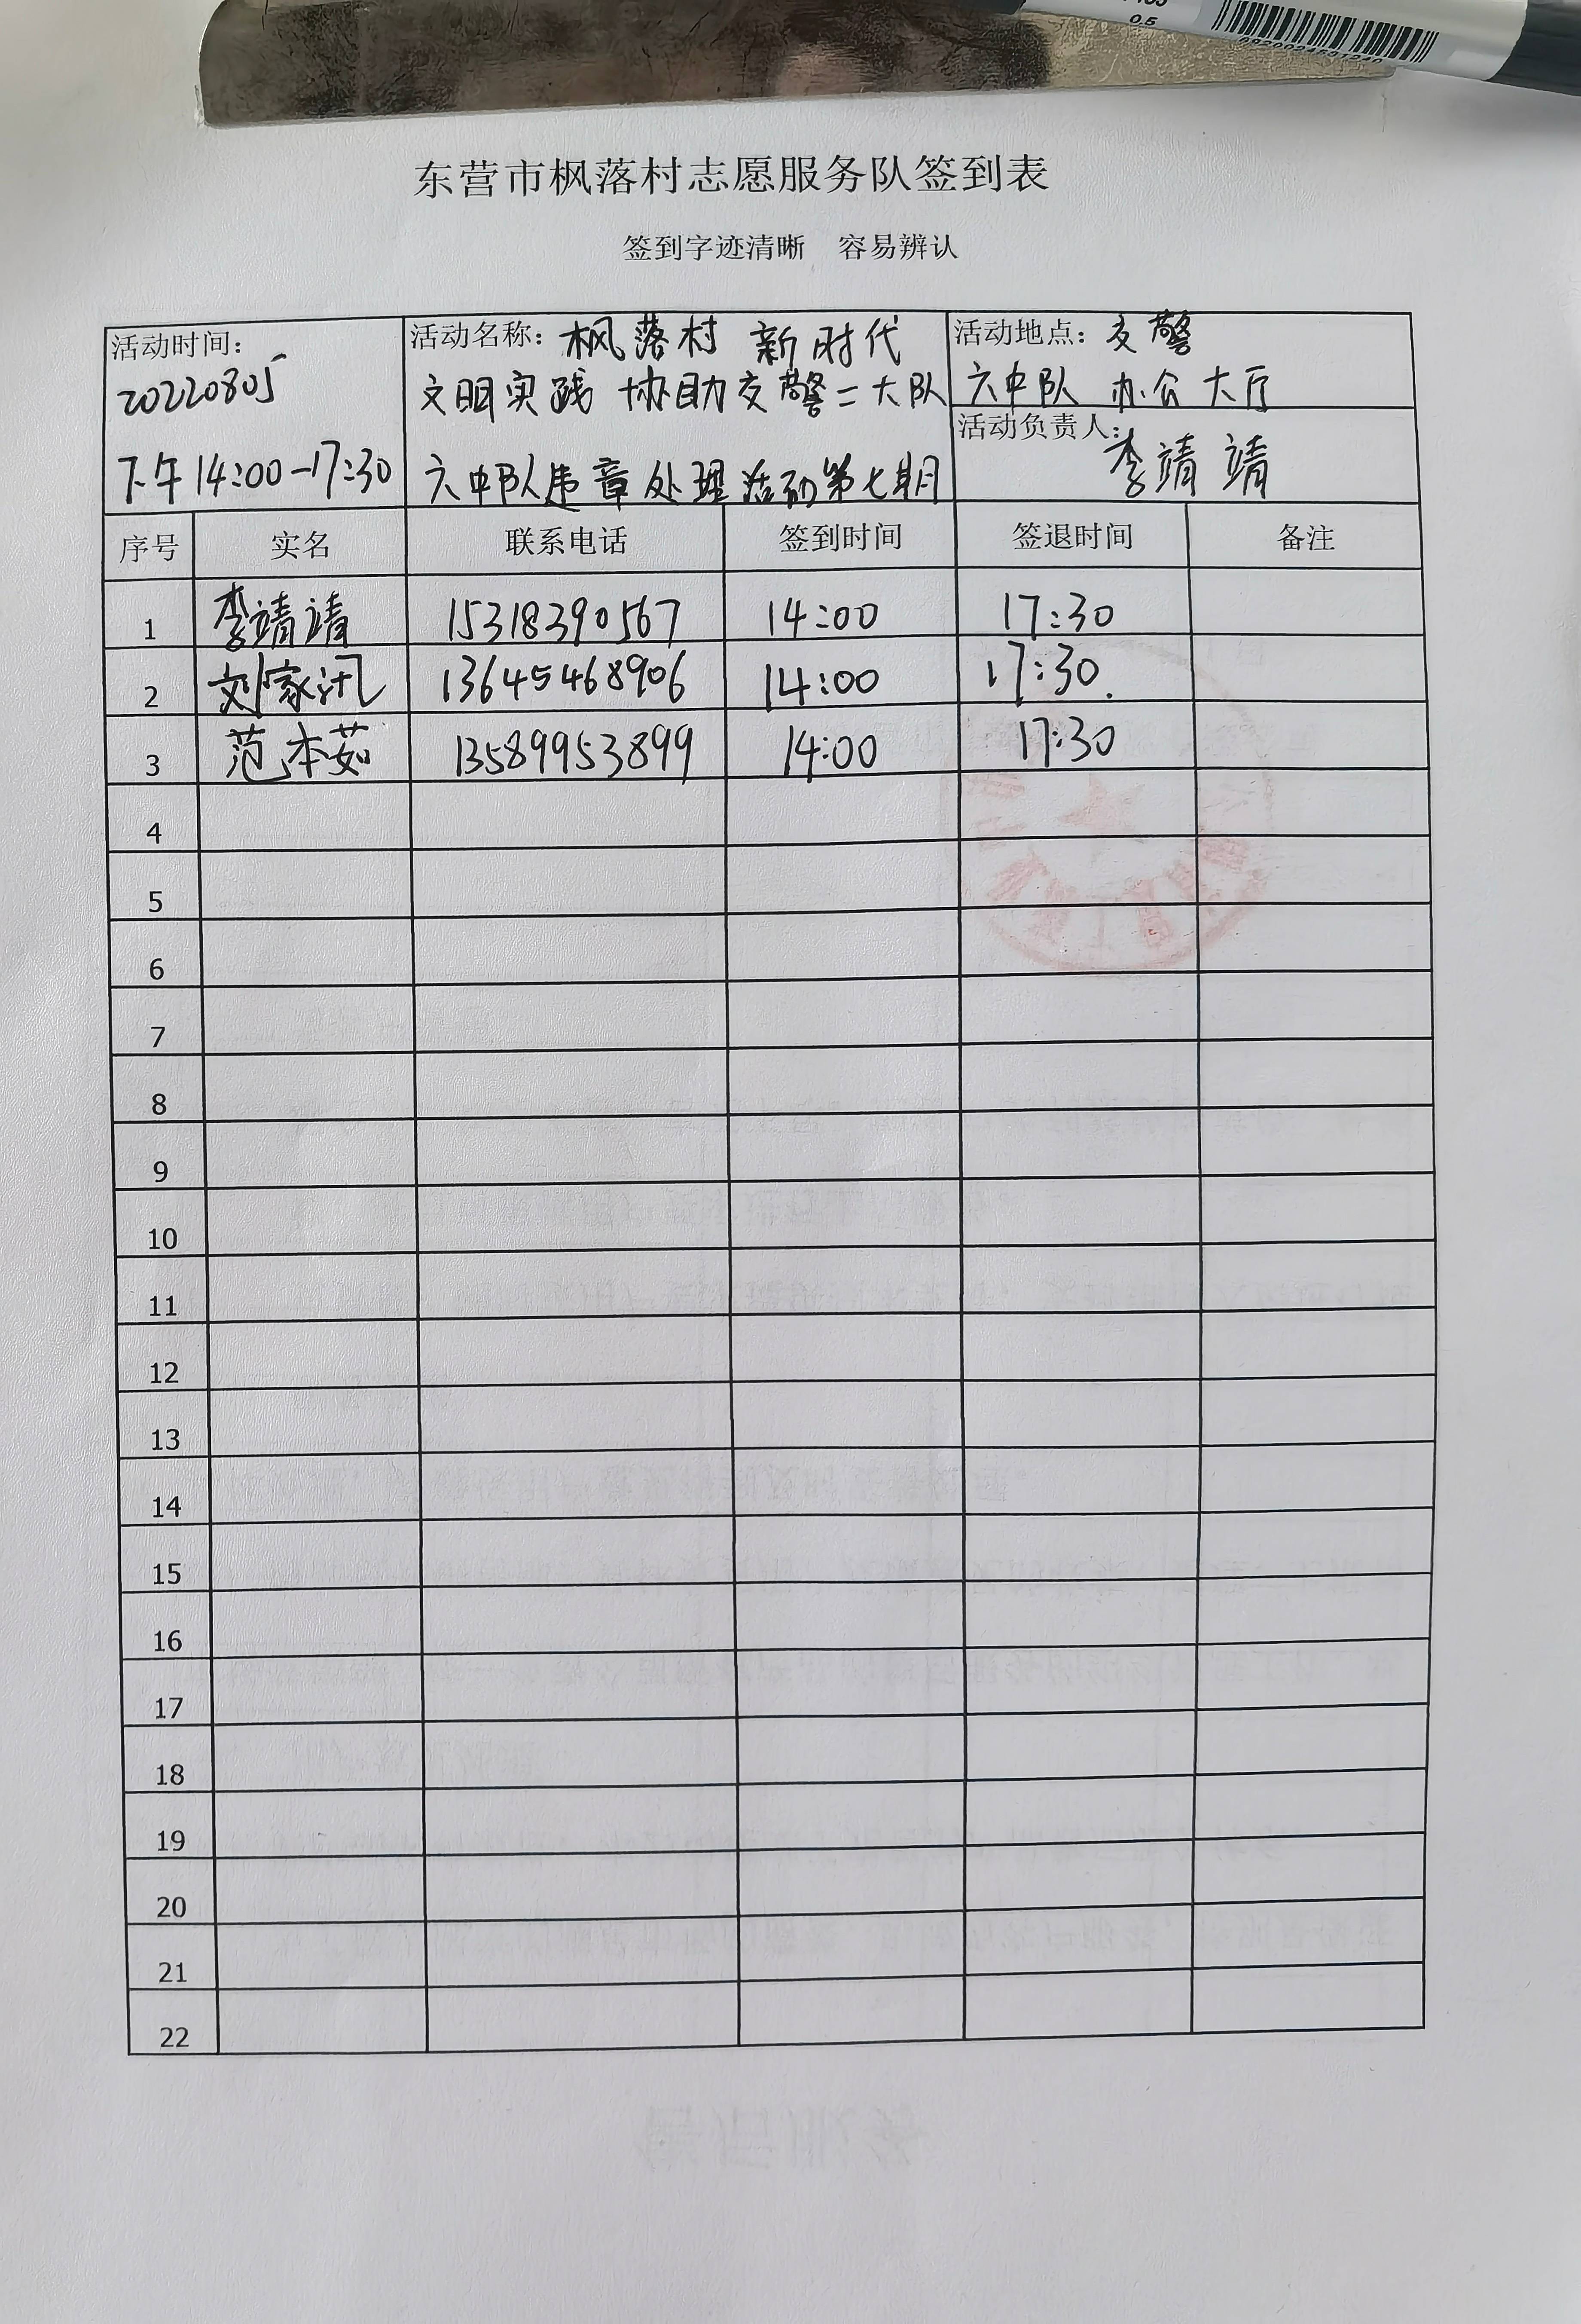 0.5
东营市枫落村志愿服务队签到表
签到字迹清晰 容易辨认
活动时间:
20220805
下午14:00-17:30
活动名称: 枫落村 新时代
文明实践 协助交警二大队
六中队违章处理活动第七期
活动地点: 交警
六中队 办公大厅
活动负责人:
李靖靖
序号 实名 联系电话 签到时间 签退时间 备注
1 李靖靖 15318390567 14:00 17:30
2 刘家汛 13645468906 14:00 17:30.
3 范本茹 13589953899 14:00 17:30
4
5
6
7
8
9
10
11
12
13
14
15
16
17
18
19
20
21
22